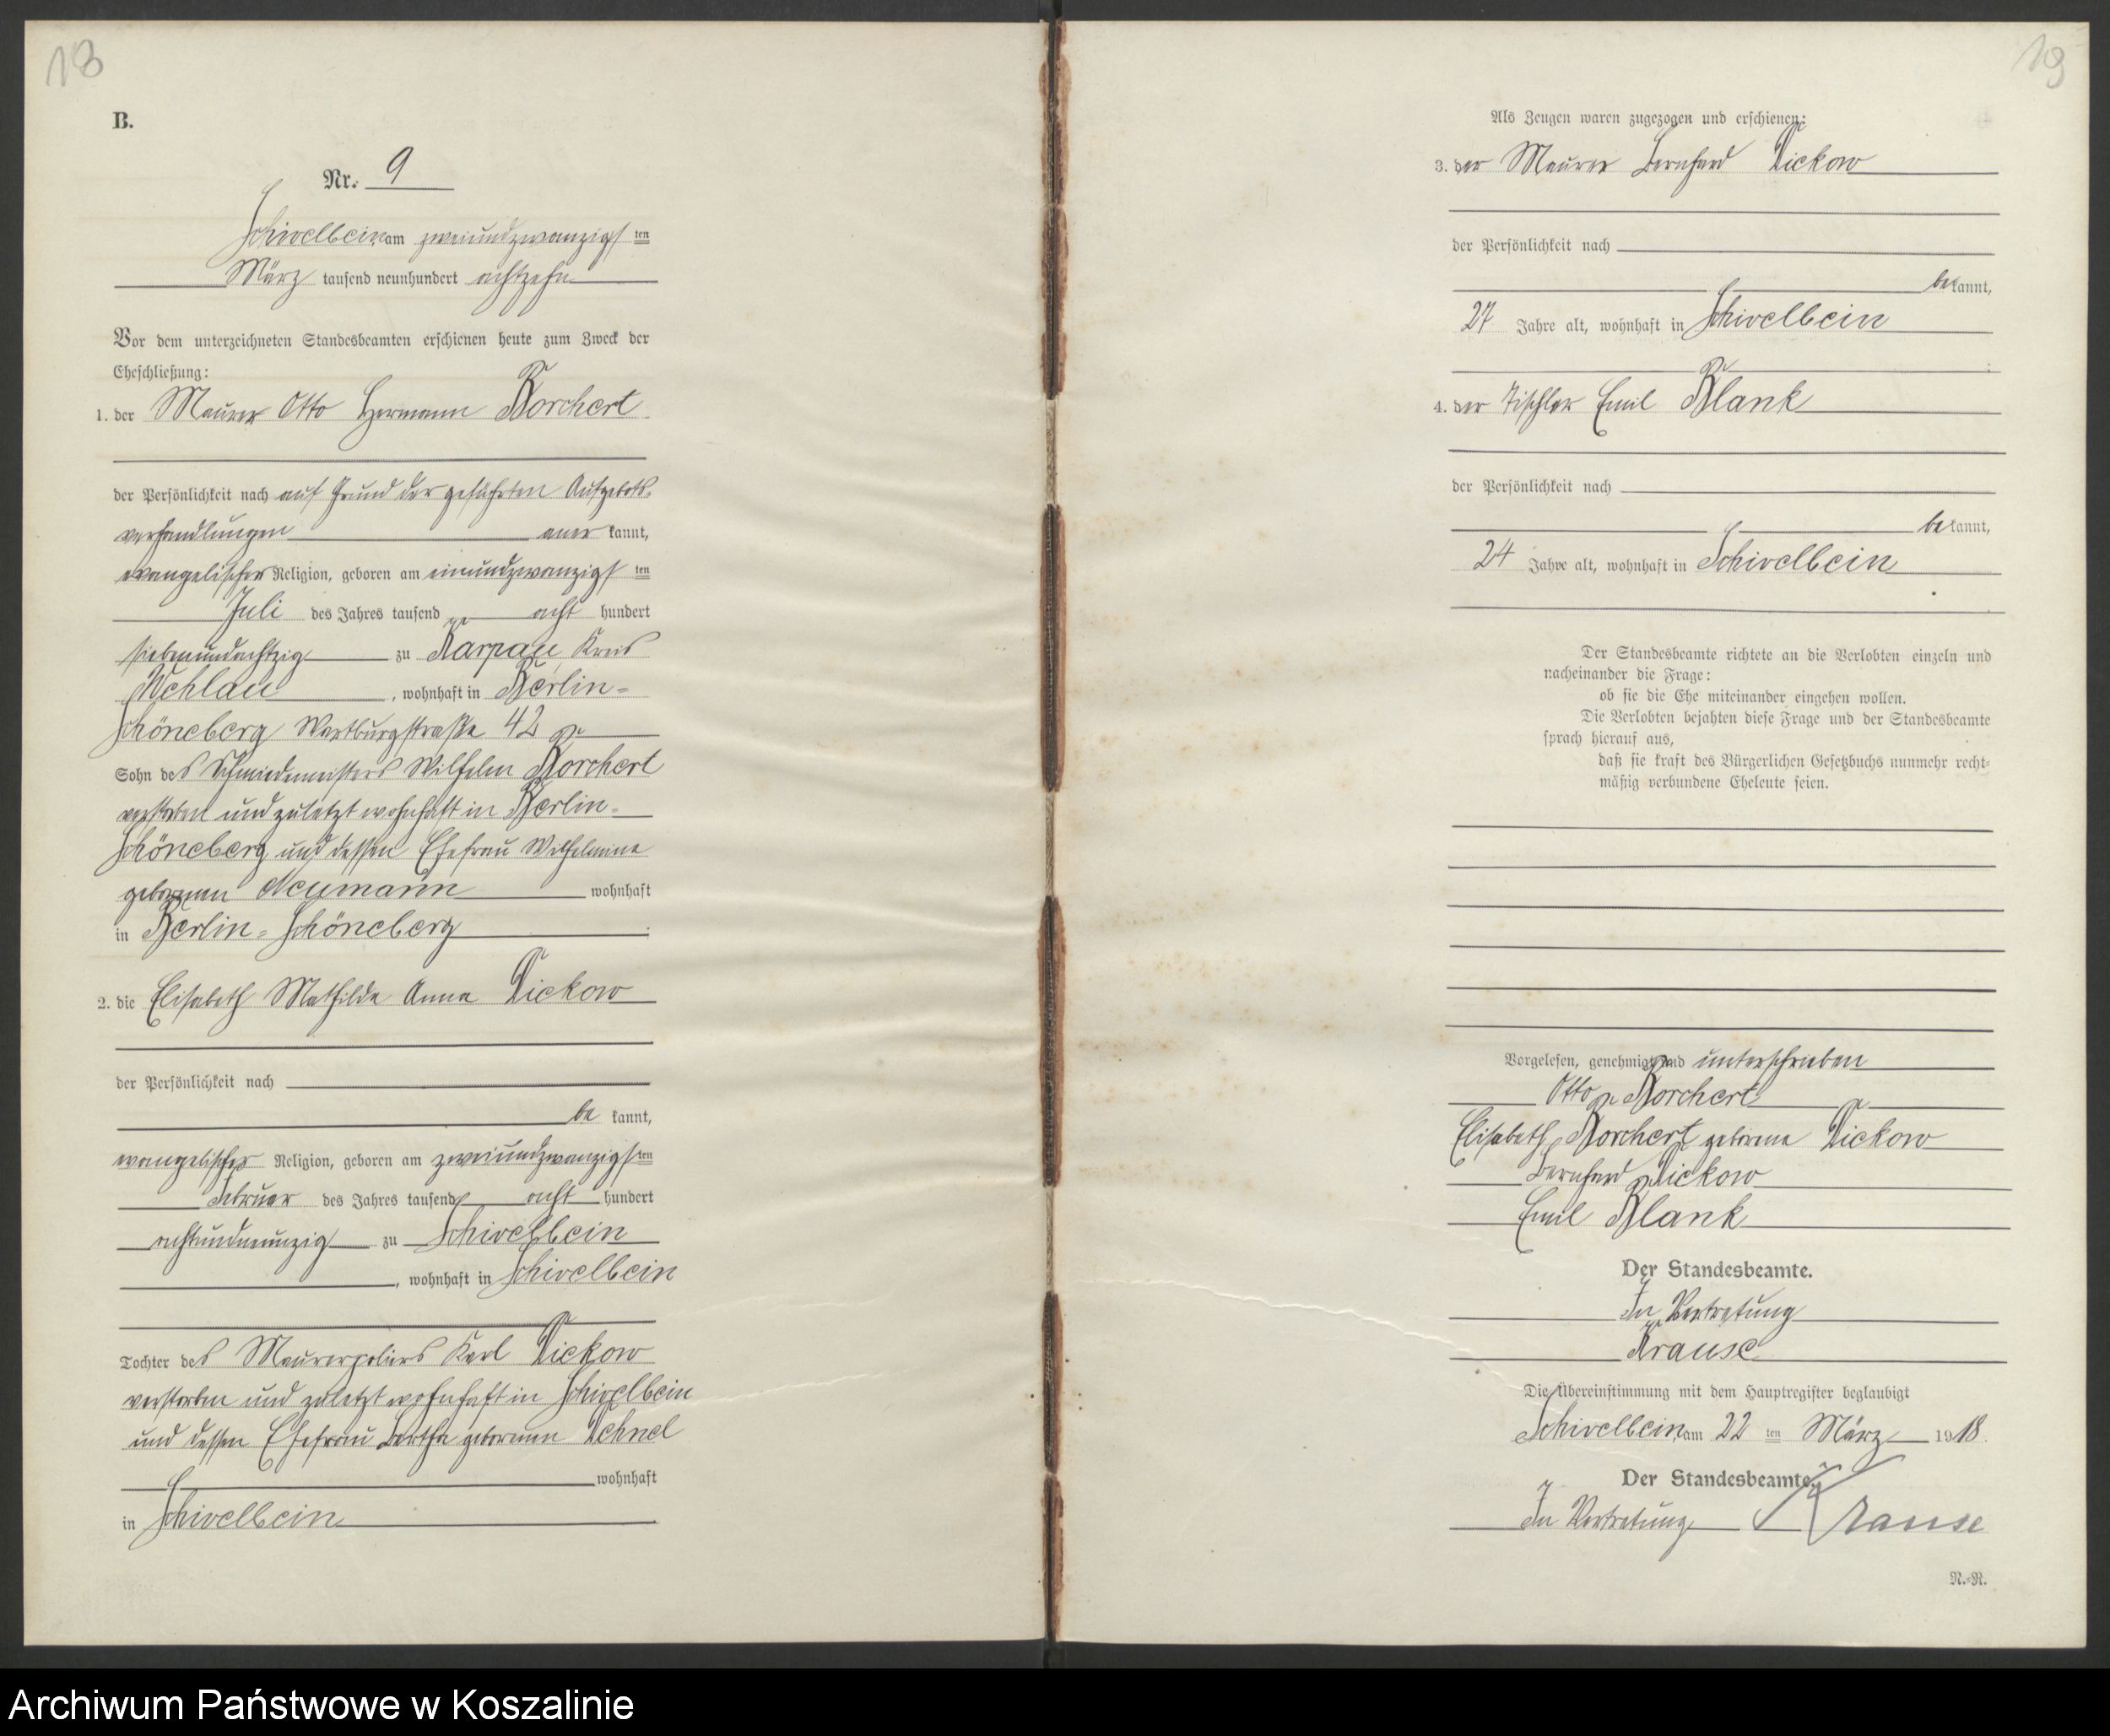 18
B.
Nr. 9
Schivelbein am zweiundzwanzigsten
März tausend neunhundert achtzehn
Vor dem unterzeichneten Standesbeamten erschienen heute zum Zweck der
Eheschließung:
1. der Maurer Otto Hermann Borchert
der Persönlichkeit nach auf Grund der geführten Aufgebots-
verhandlungen aner kannt,
evangelischer Religion, geboren am einundzwanzigsten
Juli des Jahres tausend acht hundert
siebenundachtzig zu Karpau, Kreis
Wehlau, wohnhaft in Berlin-
Schöneberg Wartburgstraße 42
Sohn des Schmiedemeisters Wilhelm Borchert
verstorben und zuletzt wohnhaft in Berlin-
Schöneberg und dessen Ehefrau Wilhelmine
geborenen Neumann wohnhaft
in Berlin-Schöneberg.
2. die Elisabeth Mathilde Anna Dickow
der Persönlichkeit nach
be kannt,
evangelischer Religion, geboren am zweiundzwanzigsten
Februar des Jahres tausend acht hundert
achtundneunzig zu Schivelbein
, wohnhaft in Schivelbein
Tochter des Maurerpoliers Karl Dickow
verstorben und zuletzt wohnhaft in Schivelbein
und dessen Ehefrau Bertha geborenen Dehnel
wohnhaft
in Schivelbein
19
Als Zeugen waren zugezogen und erschienen:
3. der Maurer Bernhard Dickow
der Persönlichkeit nach
be kannt,
27 Jahre alt, wohnhaft in Schivelbein
4. der Tischler Emil Blank
der Persönlichkeit nach
be kannt,
24 Jahre alt, wohnhaft in Schivelbein
Der Standesbeamte richtete an die Verlobten einzeln und
nacheinander die Frage:
ob sie die Ehe miteinander eingehen wollen.
Die Verlobten bejahten diese Frage und der Standesbeamte
sprach hierauf aus,
daß sie kraft des Bürgerlichen Gesetzbuchs nunmehr recht-
mäßig verbundene Eheleute seien.
Vorgelesen, genehmigt und unterschrieben
Otto Borchert
Elisabeth Borchert geborene Dickow
Bernhard Dickow
Emil Blank
Der Standesbeamte.
In Vertretung
Krause
Die Übereinstimmung mit dem Hauptregister beglaubigt
Schivelbein, am 22 ten März 1918.
Der Standesbeamte.
In Vertretung Krause
N.-R.
Archiwum Państwowe w Koszalinie